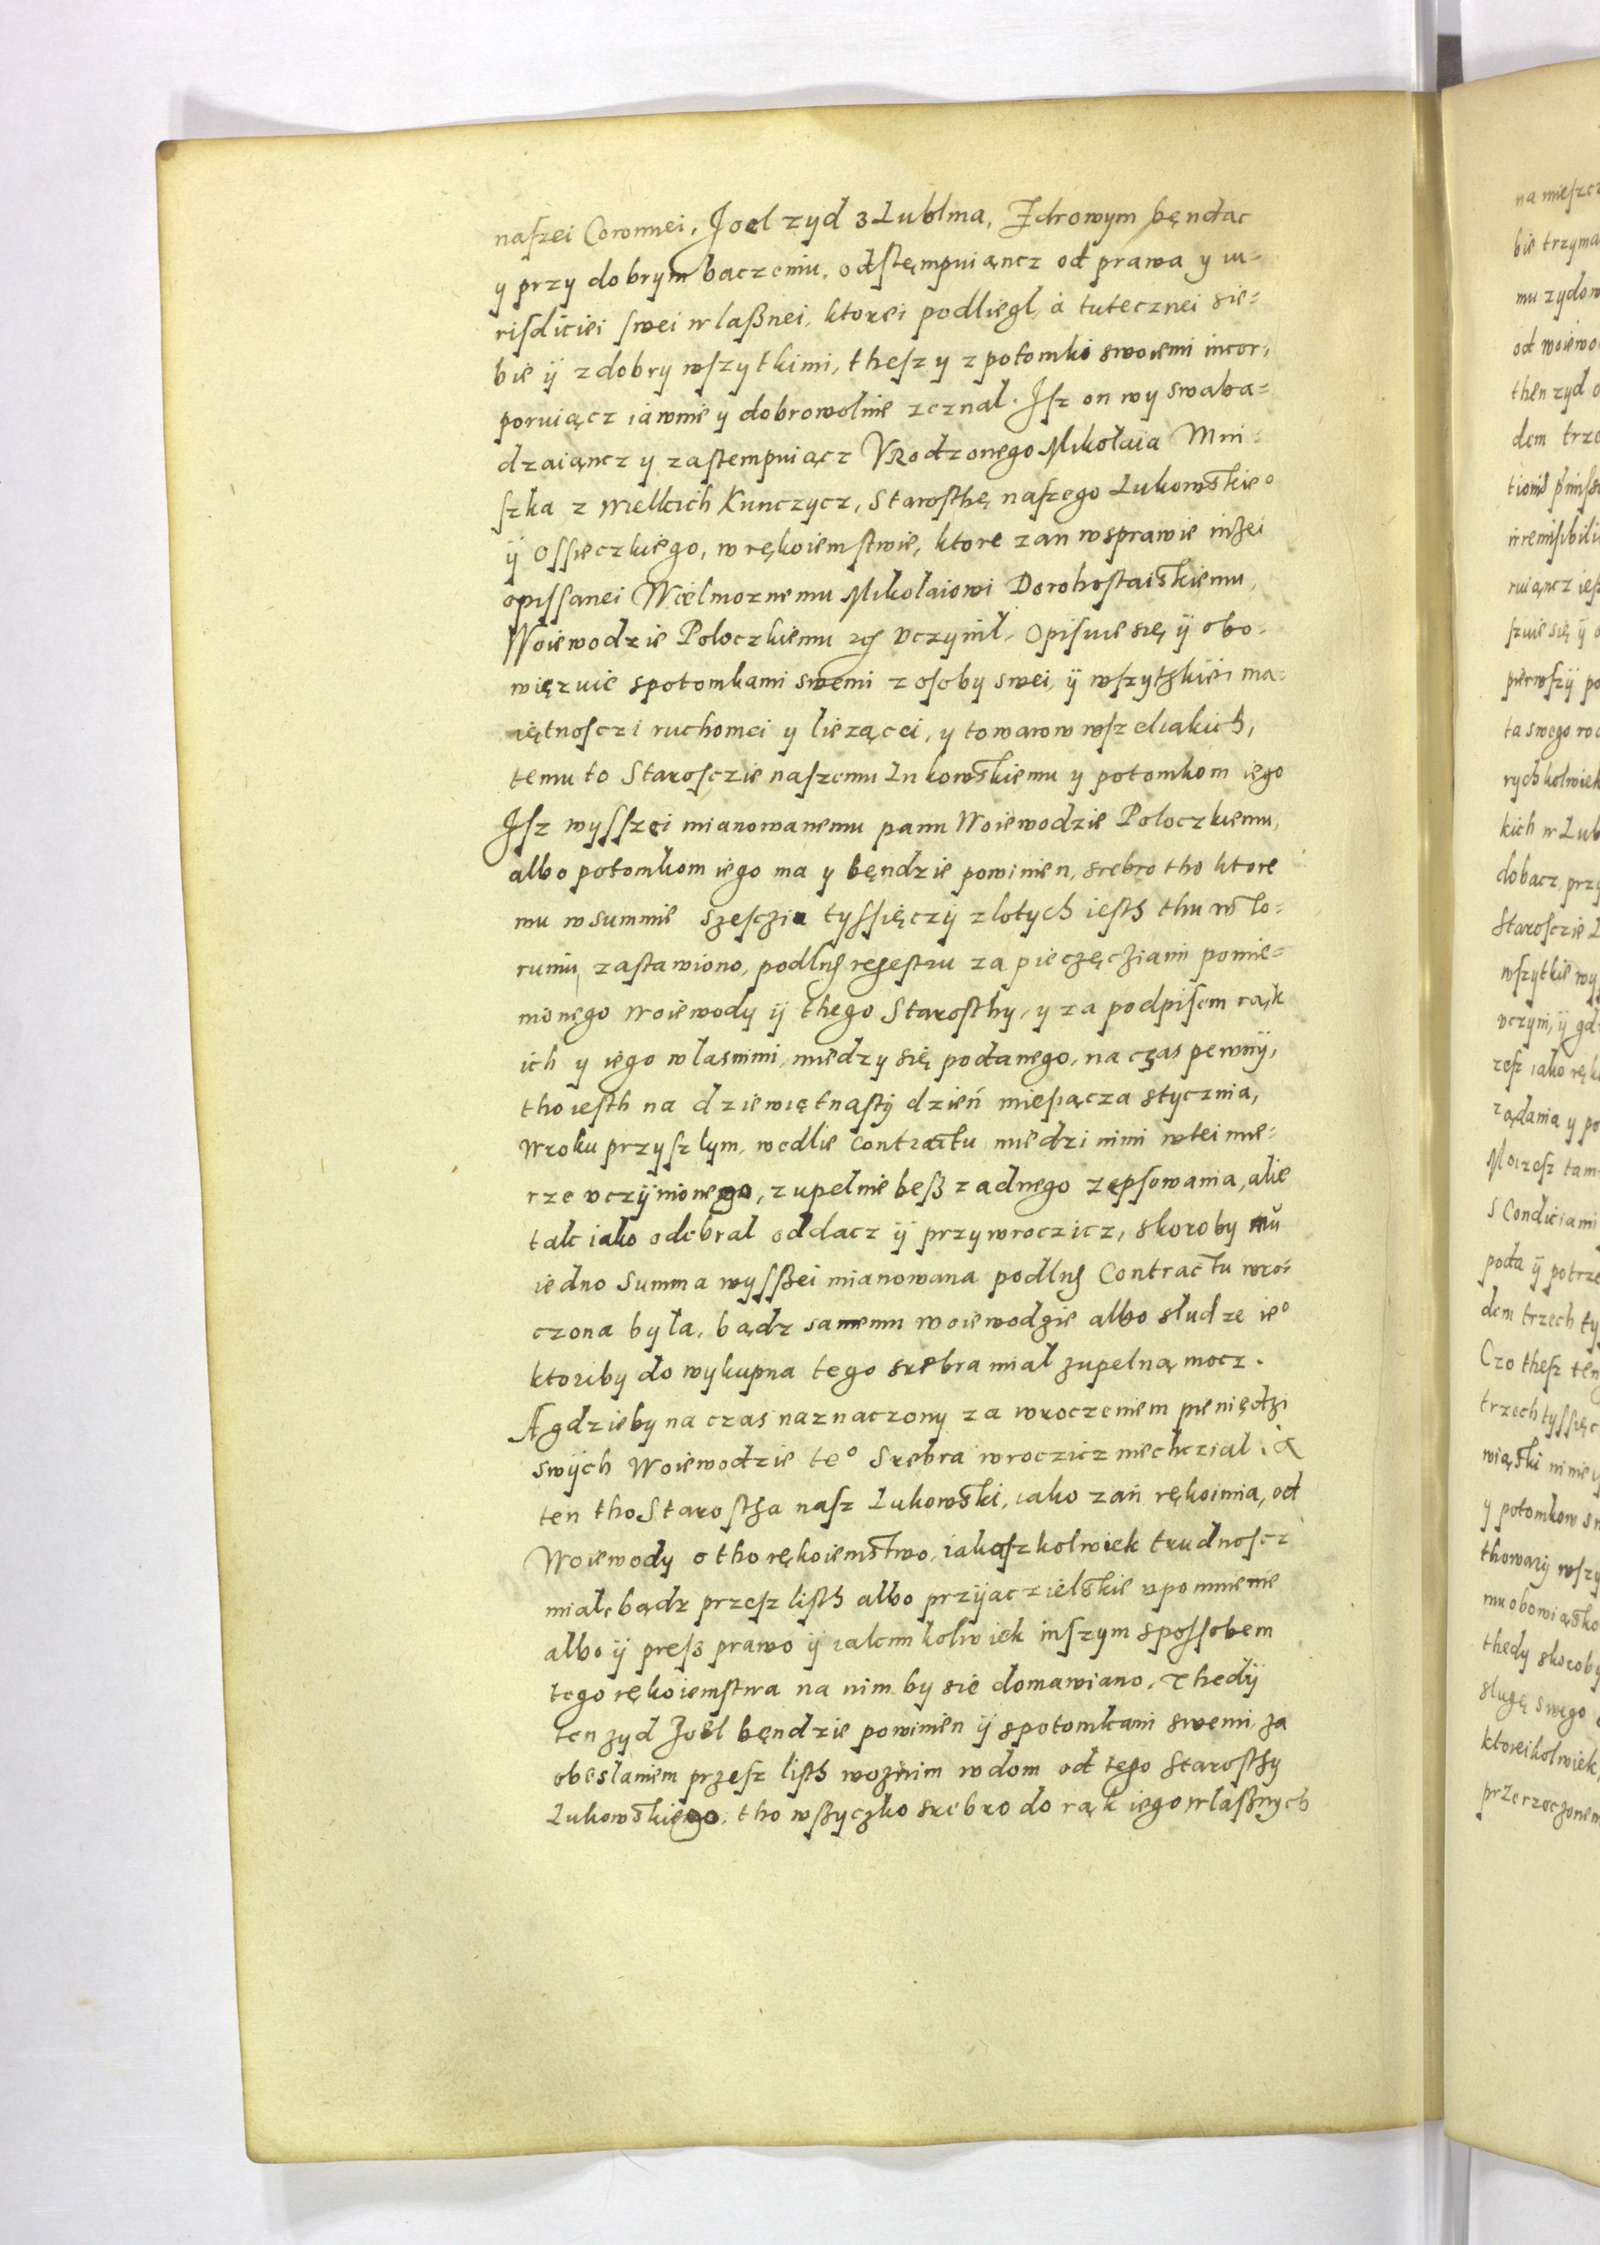 naszei Coronnei, Joel zyd z Lublina, Zdrowym bęndac
y przy dobrym baczeniu, odstęmpuiąncz od prawa y iu-
risdiciei swei wlaßnei, ktorei podliegl, a tutecznei sie-
bie ÿ z dobry wszytkimi, thesz y z potomki swoiemi incor-
poruiącz iawnie y dobrowolnie zeznal. Jsz on wyswaba-
dzaiąncz y zastempuiącz VRodzonego Mikołaia Mni-
szka z Wielkich Kunczycz, Starosthę naszego Lukowskieo
ÿ Ossieczkiego, w rękoiemstwie, ktore zan w sprawie niżei
opissanei Wielmoznemu Mikolaiowi Dorohostaiskiemu,
Woiewodzie Poloczkiemu vczynil, Opisuie się ÿ obo-
więzuie spotomkami swemi z osoby swei, ÿ wszytzkiei ma-
iętnosczi ruchomei y liezącei, y towarow wszeliakich,
temu to Starosczie naszemu Lukowskiemu y potomkom iego
Jsz wysszei mianowanemu panu Woiewodzie Poloczkiemu,
albo potomkom iego ma y bęndzie powinien, srebro tho ktore
mu w summie szesczia tyssięczÿ zlotych iesth thu w To-
runiu zastawiono, podlug regestru za pieczęcziami pomie-
nionego Woiewody ÿ thego Starosthy, y za podpisem rąk
ich y iego wlasnimi, miedzy się podanego, na czas pewnÿ,
tho iesth na dziewiętnastÿ dzień miesiącza stycznia,
w roku przyszlym, wedlie contractu miedzi nimi w tei mie-
rze vczÿnionego, zupelnie beß zadnego zepsowania, alie
tak iako odebral oddacz ÿ przywroczicz, skoroby mu
iedno Summa wyßei mianowana podlug Contractu wro-
czona była, bądz samemu woiewodzie albo słudze ieo
ktoriby do wykupna tego srebra mial zupelną mocz.
A gdzieby na czas naznaczony za wroczeniem pieniędzi
swÿch Woiewodzie teo Srebra wroczicz niechczial, a
ten tho Starostha nasz Lukowski, iako zań rękoimia, od
Woiewody o tho rękoiemstwo, iakasz kolwiek trudnoscz
mial, bądz przesz listh albo przÿaczielskie vpomnienie
albo ÿ preß prawo ÿ iakim kolwiek inszym sposobem
tego rękoiemstwa na nim by się domawiano, Thedÿ
ten zyd Joel bęndzie powinien ÿ spotomkami swemi, za
obeslaniem przesz listh woznim w dom od tego Starosthy
Lukowskiego, tho wszyczko srebro do rąk iego wlaßnych
na mieszcz
bie trzyma
mu zydow
od woiewo
then zyd o
dem trze
irremisibili
szuie się ÿ o
pierwszÿ po
ta swego ro
rych kolwiek
kich w Lub
dobacz, przy
Starosczie L
wszytkie wy
vczyni, ÿ gd
zesz iako ręk
żądania y po
S Condiciami
poda ÿ potrze
dem trzech ty
Czo thesz ten
trzech tyssięc
y potomkow
thowarÿ wszy
mu obowiąsko
thedy skoroby
slugę swego
ktoreikolwiek
przerzeczonem